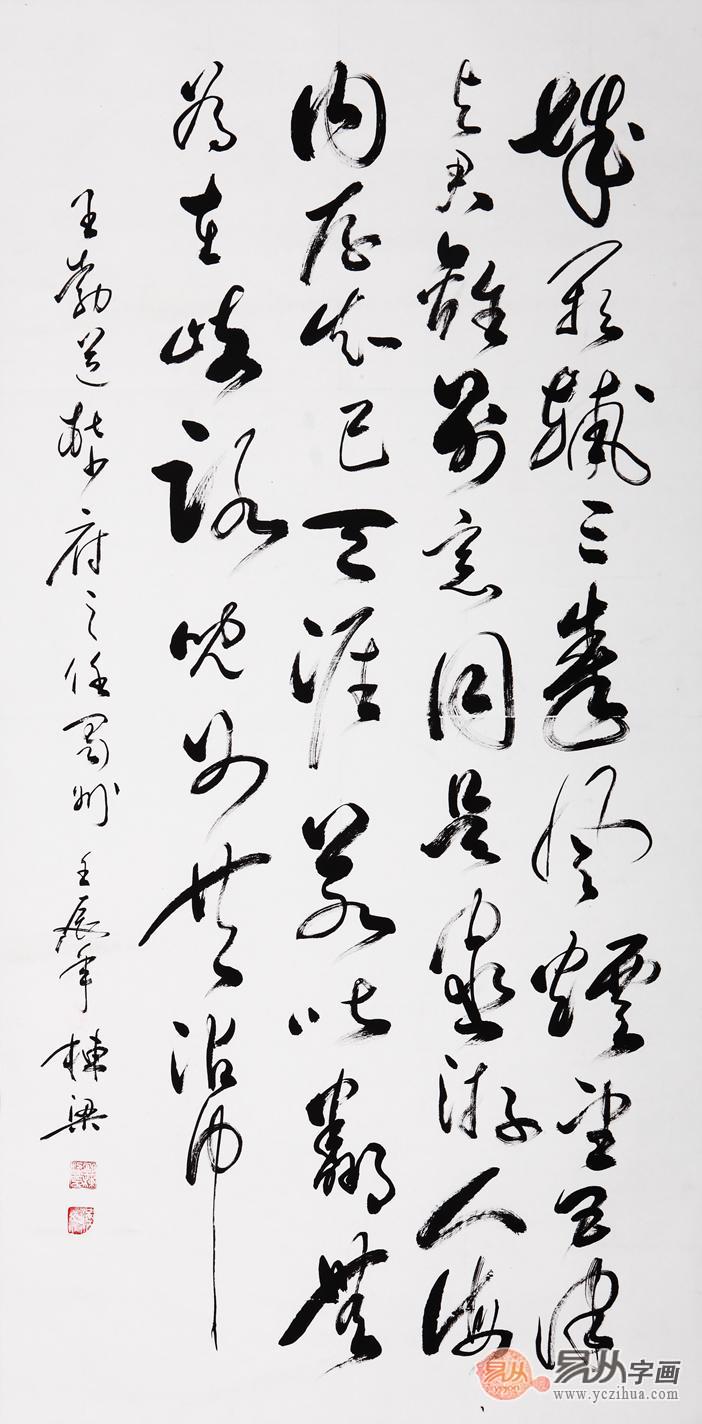 城闕輔三秦風煙望五津
与君離別意同是宦游人海
内存知己天涯若比鄰無
為在歧路児女共沾巾
王勃送杜少府之任蜀州 壬辰年 棟梁
易从
易从字画
www.yczihua.com